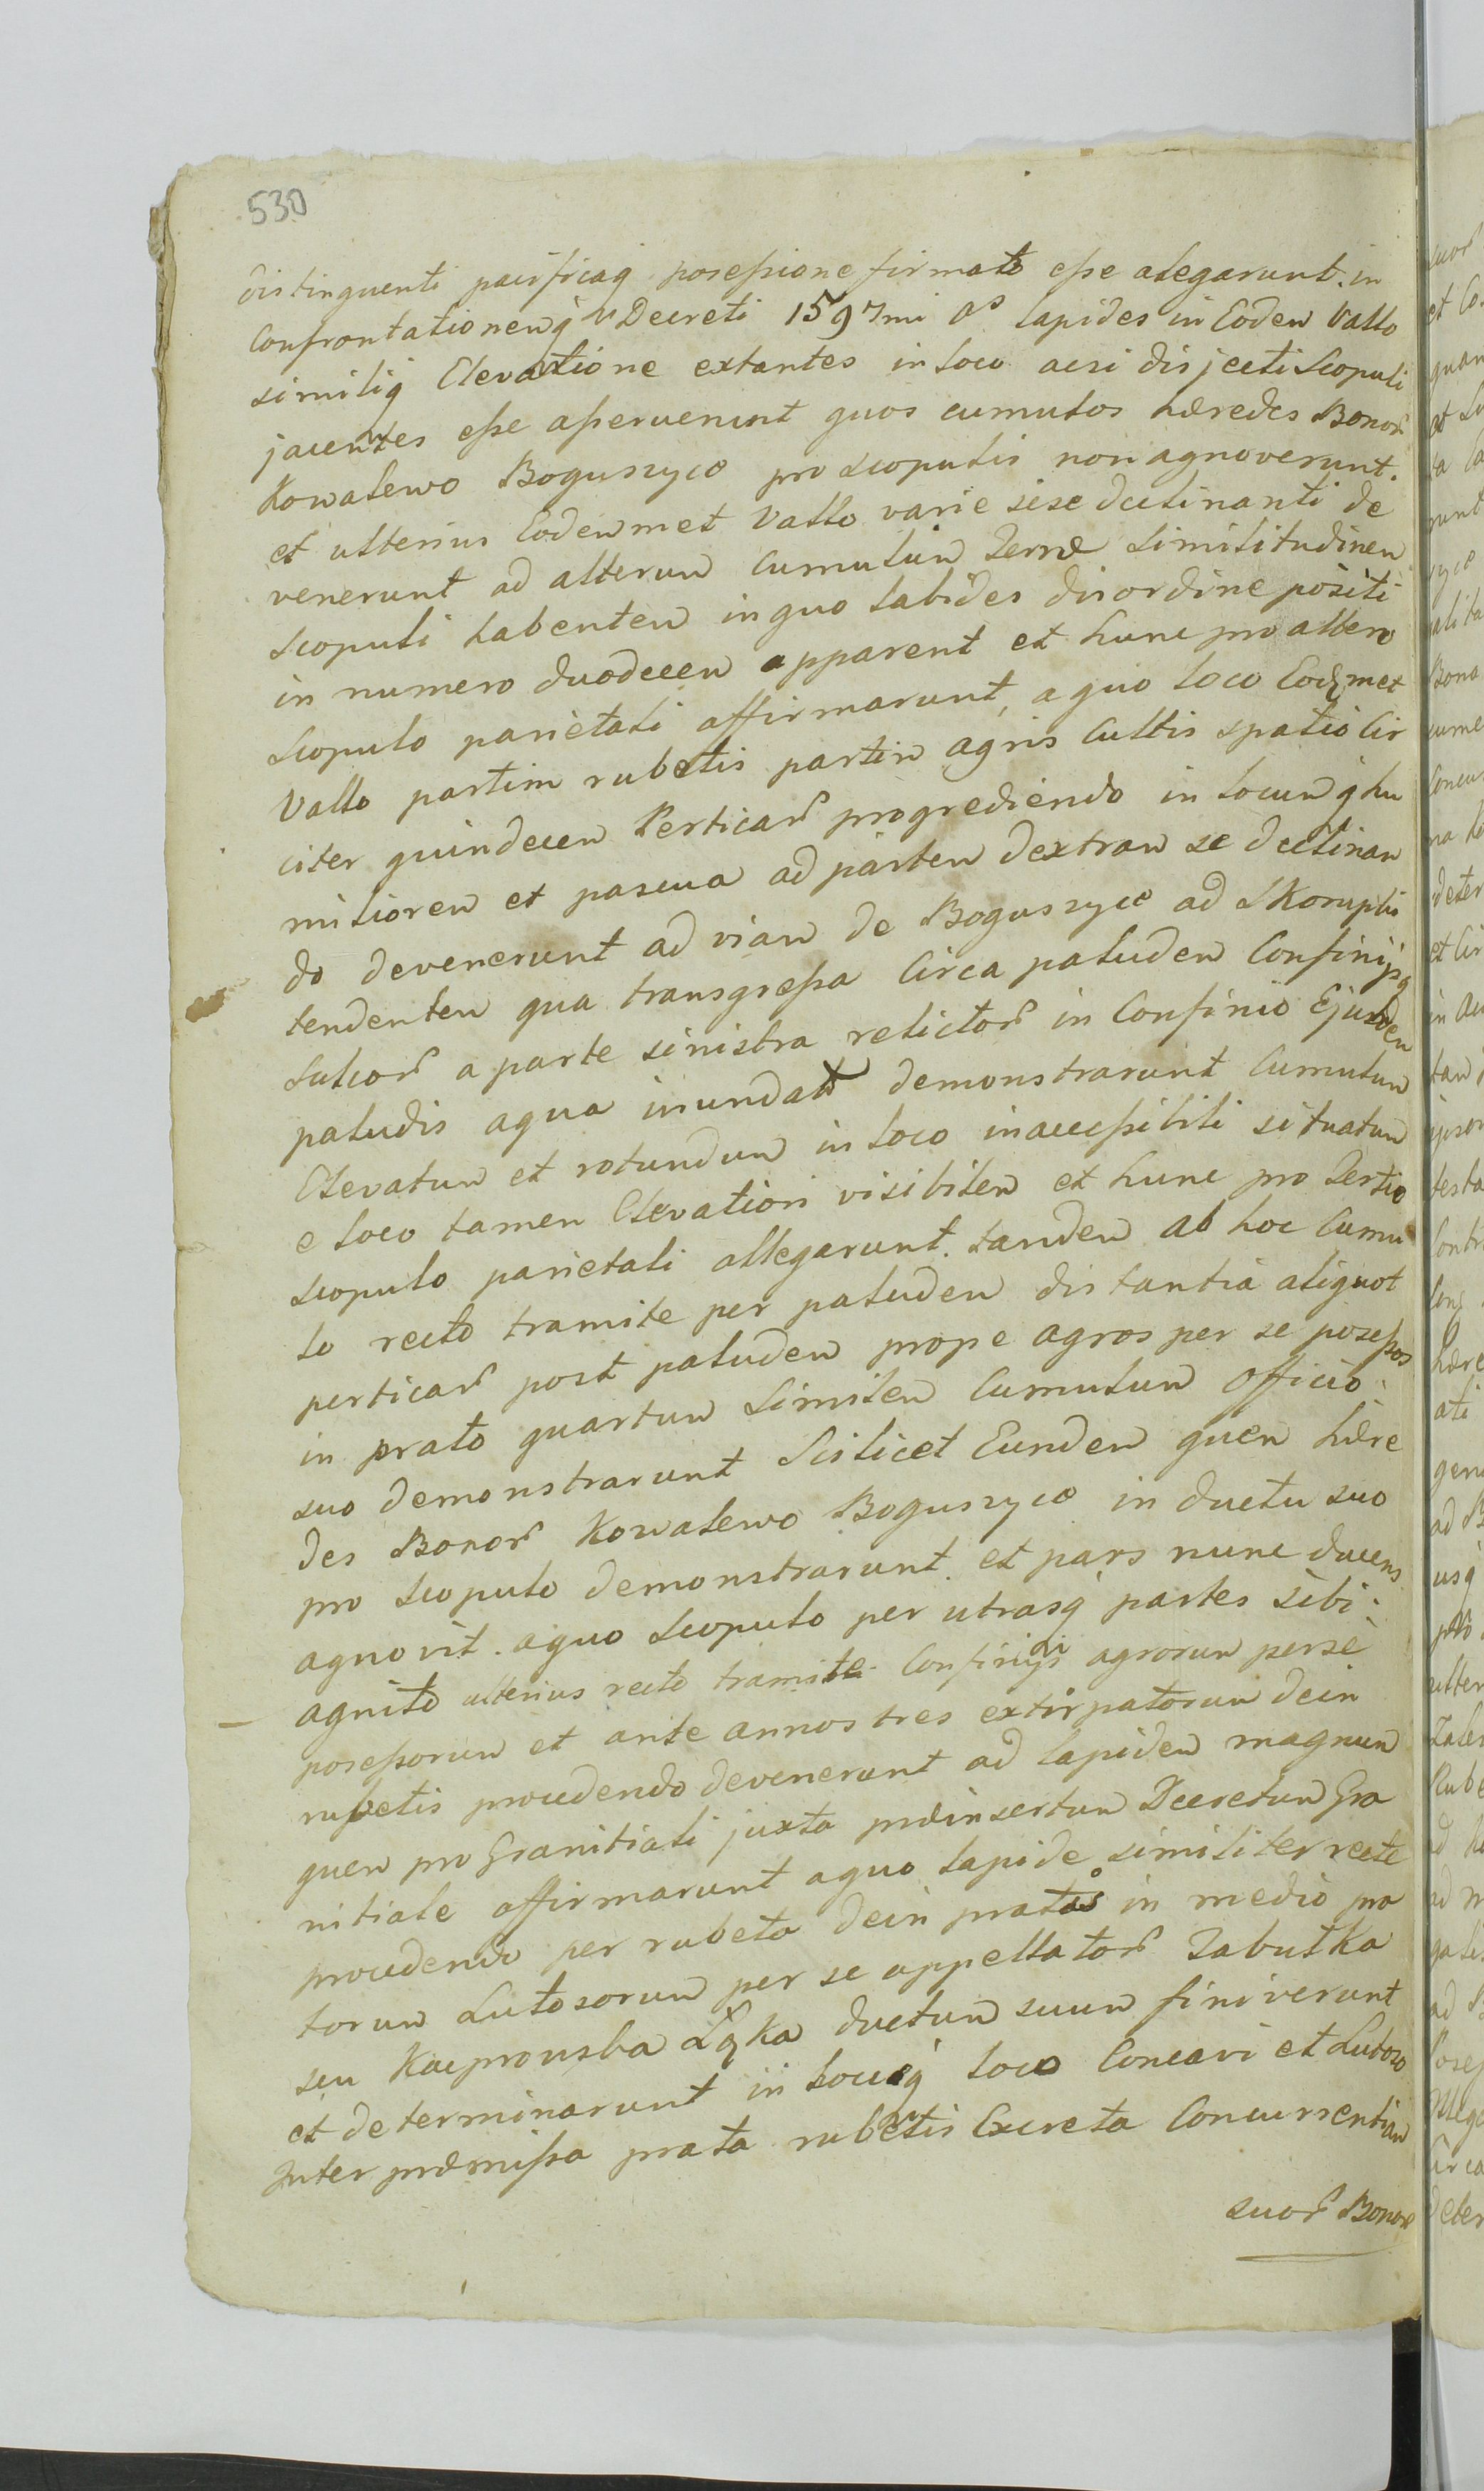 530
distinguenti pacificaq posessione firmato esse alegarunt. in
Confrontationemq Decreti 1597mi Ao lapides in Eodem Vallo
similiq Elevatione extantes in loco acsi disjecti Scopuli
jacentes esse asseruerunt quos cumulos hæredes Bonor
Kowalewo Boguszyce pro scopulis non agnoverunt.
et ulterius Eodemmet Vallo varie sese declinanti de
venerunt ad alterum Cumulum Terræ similitudinem
scopuli habentem in quo labides disordine positi
in numero duodecem apparent et hunc pro altero
scopulo parietali affirmarunt, a quo loco Eodemet
Vallo partim rubetis partim agris Cultis spatio Cir
citer quindecem Perticar progrediendo in locum q hu
miliorem et pascua ad partem dextram se declinan
do devenerunt ad viam de Boguszyce ad Skorupki
tendentem qua transgressa Circa paludem Confinijsq
sulcor a parte sinistra relictor in Confinio Ejusdem
paludis aqua inundat demonstrarunt Cumulum
Elevatum et rotundum in loco inaccessibili situatum
e loco tamen Elevatiori visibilem et hunc pro Tertio
scopulo parietali allegarunt. tandem ab hoc Cumu
lo recto tramite per paludem distantia aliquot
perticar post paludem prope agros per se posessos
in prato quartum Similem Cumulum Officio
suo demonstrarunt Scilicet Eundem quem hære
des Bonor Kowalewo Boguszyce in ductu suo
pro scopulo demonstrarunt. et pars nunc ducens
agnovit. a quo scopulo per utrasq partes sibi
agnito ulterius recto tramite Confinijs agrorum per se
posessorum et ante annos tres extirpatorum dein
rubetis procedendo devenerunt ad lapidem magnum
quem pro Granitiali juxta præinsertum Decretum Gra
nitiale affirmarunt a quo lapide similiter recte
procedendo per rubeta dein pratis in medio pra
torum Lutosorum per se appellator Zabutka
seu Kacprouska Ląka ductum suum finiverunt
et determinarunt in loco Concavi et Lutoso
Inter præmissa prata rubetis Excreta Concurrentiam
suor Bonor